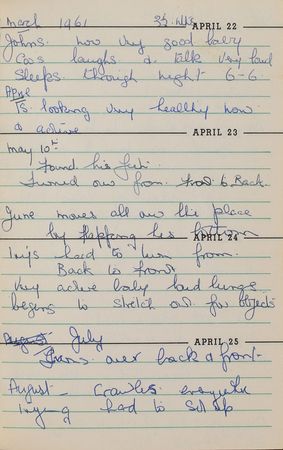 March 1961 3½ wks
APRIL 22
Johns. now very good baby
Coos laughs & talk very loud
Sleeps through night 6-6.
April
Is looking very healthy now
& active
APRIL 23
May 10th
Found his feet.
Turned over from front to Back.
June moves all over the place
by flapping his bottom
APRIL 24
trys hard to turn from
Back to front
Very active baby loud lungs
begins to stretch out for objects
APRIL 25
August July
Turns over back & front
August - Crawles everywhere
trying hard to sit up